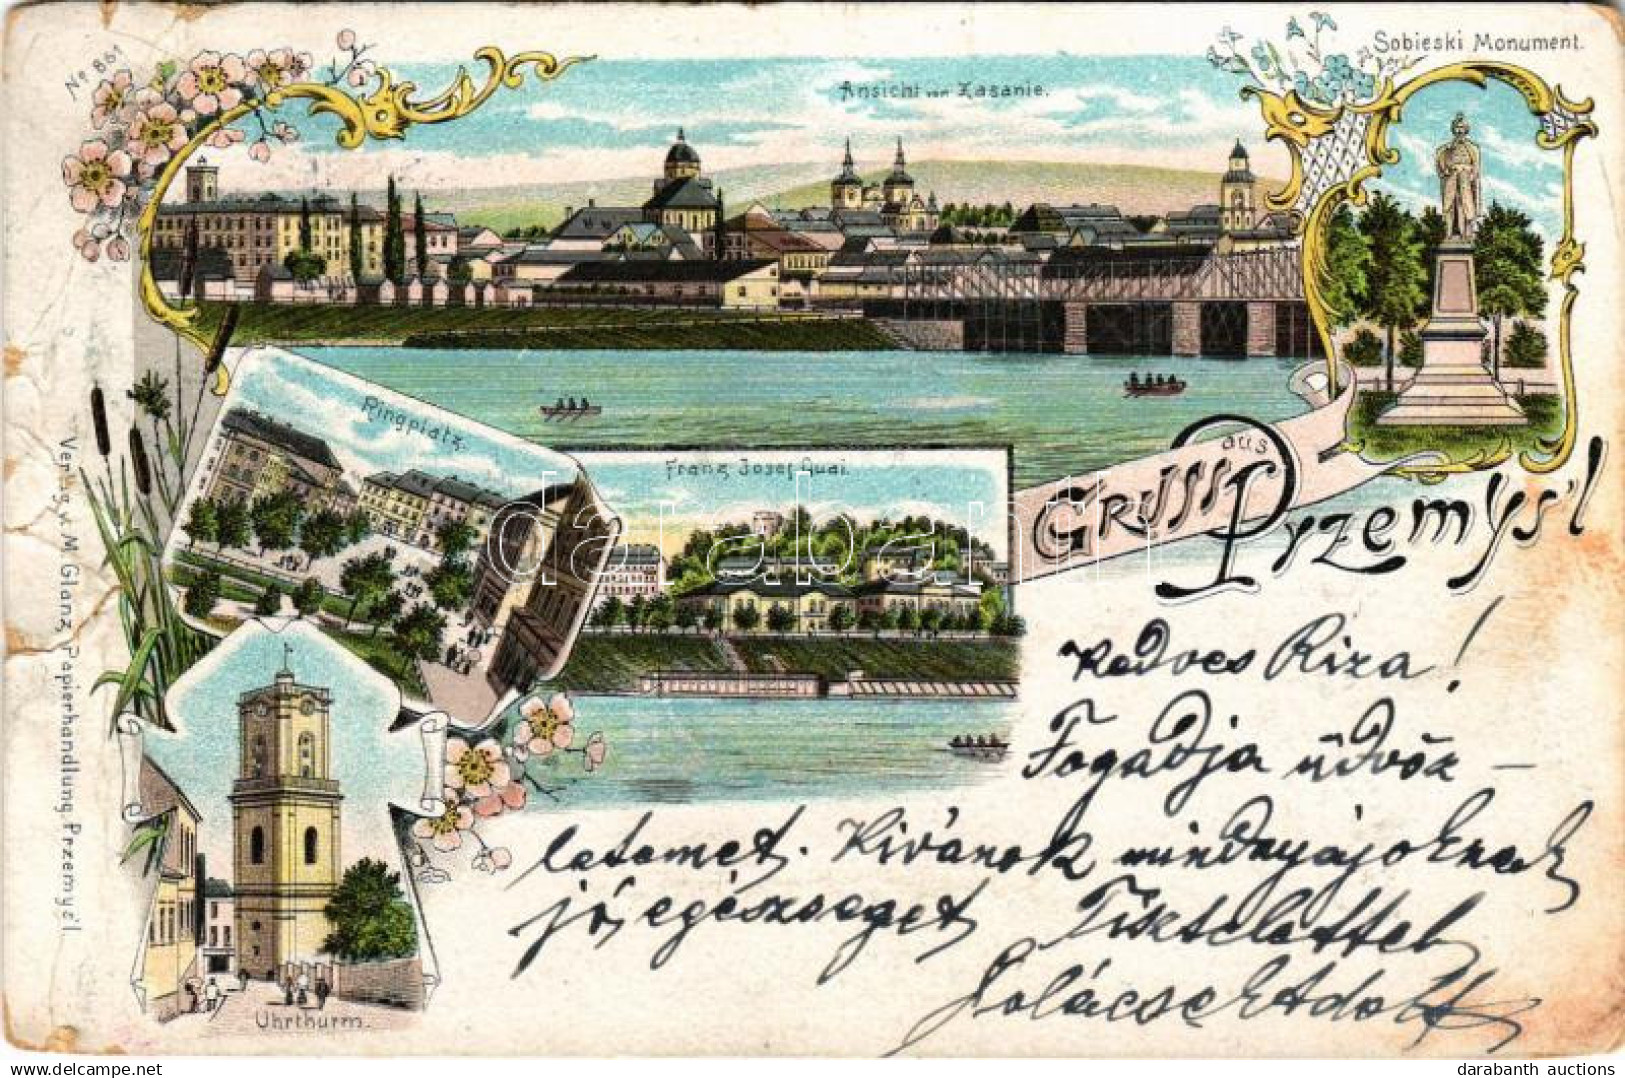 No 861
Ansicht von Zasanie.
Sobieski Monument.
Ringplatz.
Franz Josef Quai.
GRUSS aus Przemyśl
Uhrthurm.
Verlag v. M. Glanz, Papierhandlung, Przemyśl.
Kedves Riza!
Fogadja üdvöz-
letemet. Kivánok mindnyájoknak
jó egészséget Tisztelettel
Adolf
darabanth
darabanth auctions